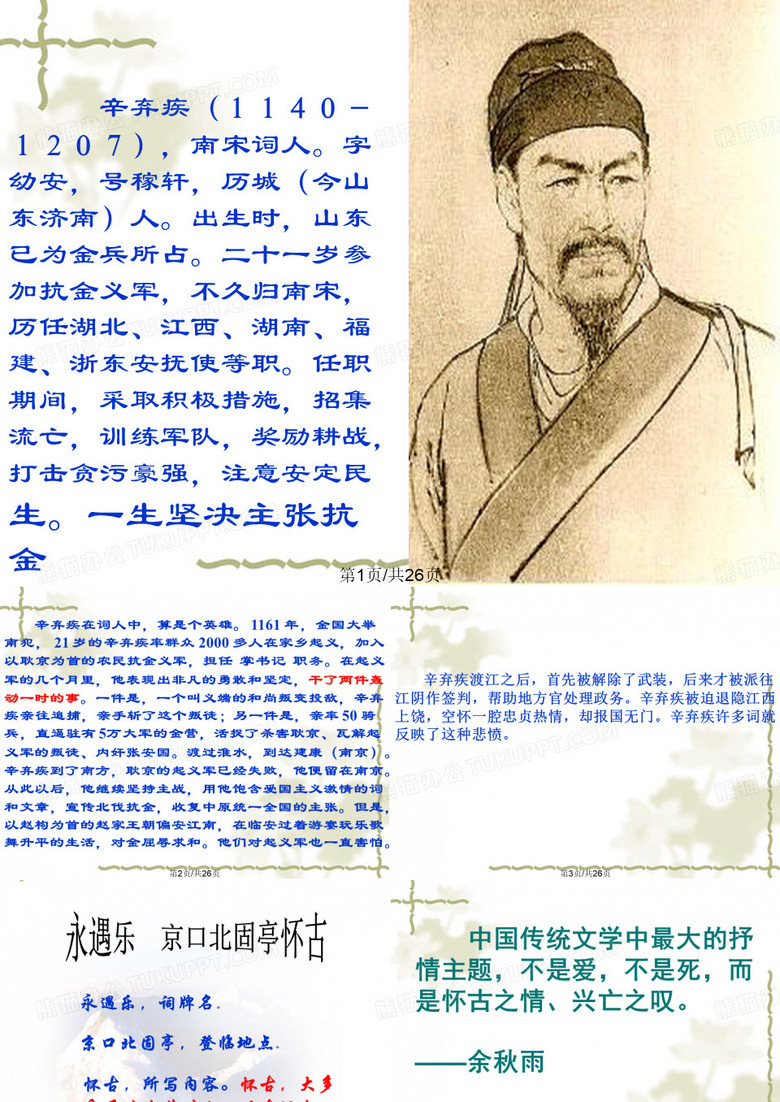 辛弃疾（１１４０－
１２０７），南宋词人。字
幼安，号稼轩，历城（今山
东济南）人。出生时，山东
已为金兵所占。二十一岁参
加抗金义军，不久归南宋，
历任湖北、江西、湖南、福
建、浙东安抚使等职。任职
期间，采取积极措施，招集
流亡，训练军队，奖励耕战，
打击贪污豪强，注意安定民
生。一生坚决主张抗
金
第1页/共26页
辛弃疾在词人中，算是个英雄。1161年，金国大举
南犯，21岁的辛弃疾率群众2000多人在家乡起义，加入
以耿京为首的农民抗金义军，担任 掌书记 职务。在起义
军的几个月里，他表现出非凡的勇敢和坚定，干了两件轰
动一时的事。一件是，一个叫义端的和尚叛变投敌，辛弃
疾亲往追捕，亲手斩了这个叛徒；另一件是，亲率50骑
兵，直逼驻有5万大军的金营，活捉了杀害耿京、瓦解起
义军的叛徒、内奸张安国。渡过淮水，到达建康（南京）。
辛弃疾到了南方，耿京的起义军已经失败，他便留在南京。
从此以后，他继续坚持主战，用他饱含爱国主义激情的词
和文章，宣传北伐抗金，收复中原统一全国的主张。但是，
以赵构为首的赵家王朝偏安江南，在临安过着游宴玩乐歌
舞升平的生活，对金屈辱求和。他们对起义军也一直害怕。
第2页/共26页
辛弃疾渡江之后，首先被解除了武装，后来才被派往
江阴作签判，帮助地方官处理政务。辛弃疾被迫退隐江西
上饶，空怀一腔忠贞热情，却报国无门。辛弃疾许多词就
反映了这种悲愤。
第3页/共26页
永遇乐 京口北固亭怀古
永遇乐，词牌名.
京口北固亭，登临地点.
怀古，所写内容。怀古，大多
中国传统文学中最大的抒
情主题，不是爱，不是死，而
是怀古之情、兴亡之叹。
——余秋雨